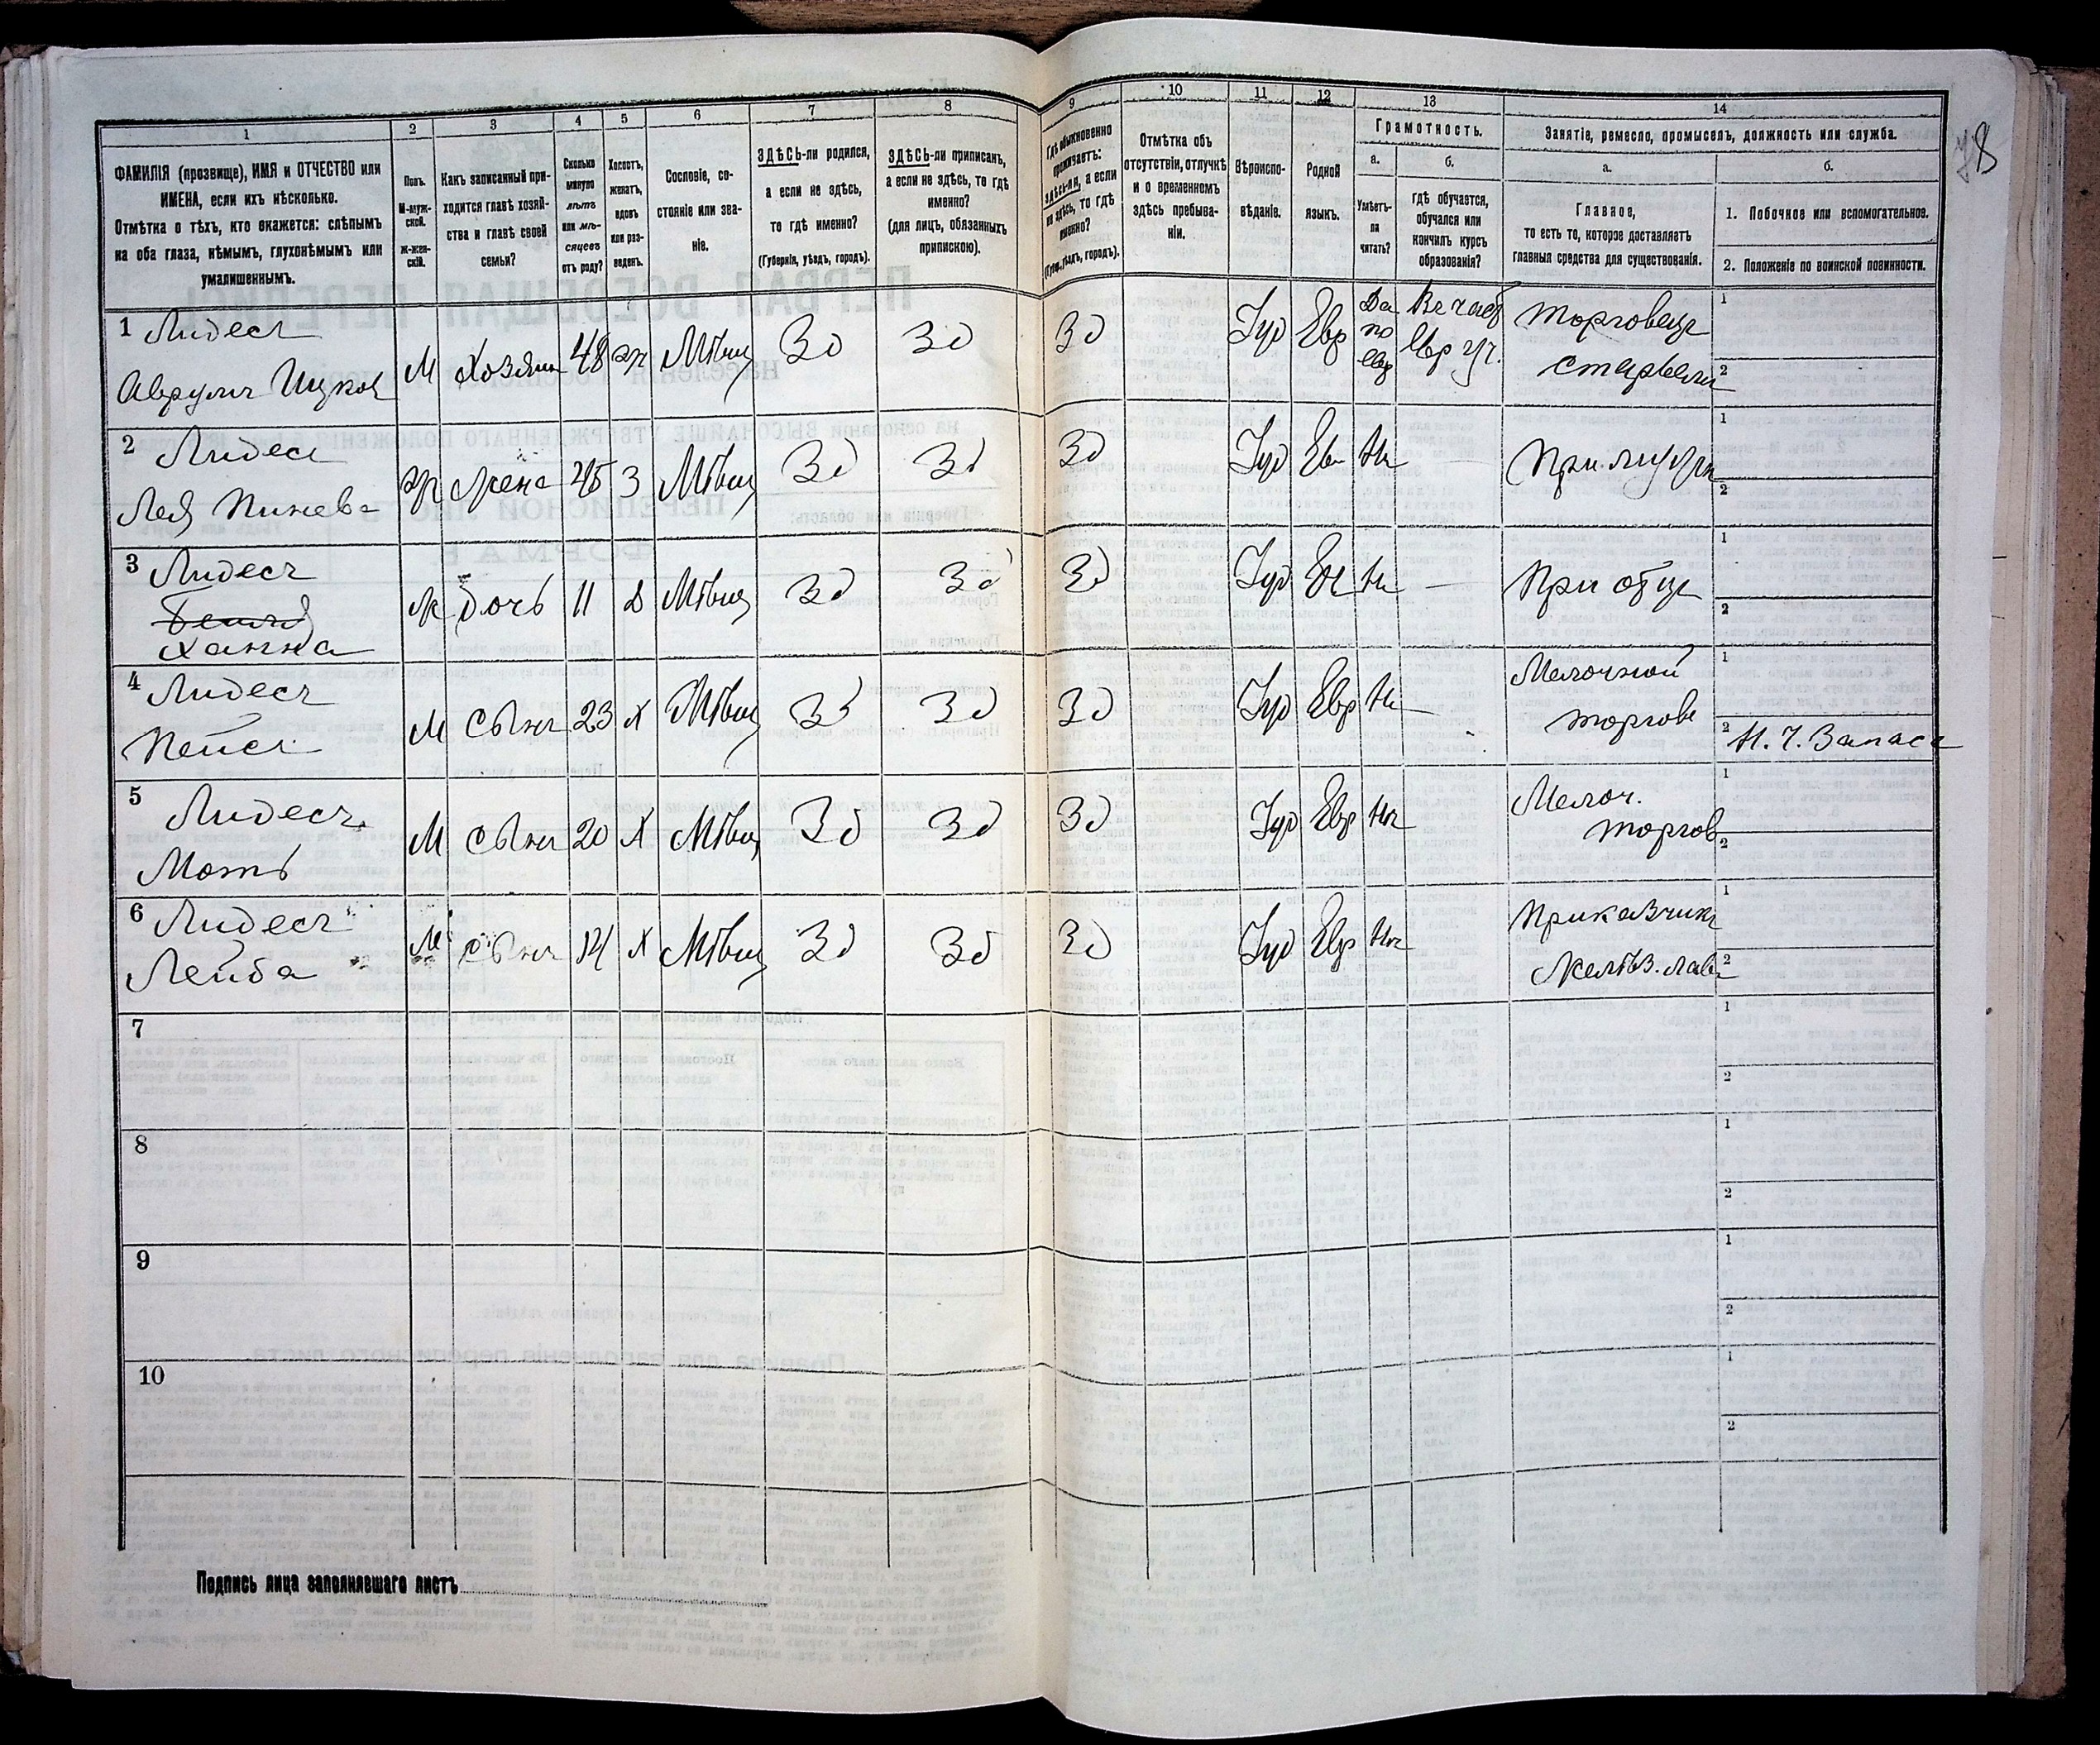 78
1 2 3 4 5 6 7 8 9 10 11 12 13 14
ФАМИЛІЯ (прозвище), ИМЯ и ОТЧЕСТВО или
ИМЕНА, если ихъ нѣсколько.
Отмѣтка о тѣхъ, кто окажется: слѣпымъ
на оба глаза, нѣмымъ, глухонѣмымъ или
умалишеннымъ.
Полъ.
М-муж-
ской.
Ж-жен-
скій.
Какъ записанный при-
ходится главѣ хозяй-
ства и главѣ своей
семьи?
Сколько
минуло
лѣтъ
или мѣ-
сяцевъ
отъ роду?
Холостъ,
женатъ,
вдовъ
или раз-
веденъ.
Сословіе, со-
стояніе или зва-
ніе.
ЗДѢСЬ-ли родился,
а если не здѣсь,
то гдѣ именно?
(Губернія, уѣздъ, городъ).
ЗДѢСЬ-ли приписанъ,
а если не здѣсь, то гдѣ
именно?
(для лицъ, обязанныхъ
припискою).
Гдѣ обыкновенно
проживаетъ:
здѣсь-ли, а если
не здѣсь, то гдѣ
именно?
(Губ., уѣздъ, городъ).
Отмѣтка объ
отсутствіи, отлучкѣ
и о временномъ
здѣсь пребыва-
ніи.
Вѣроиспо-
вѣданіе.
Родной
языкъ.
Грамотность.
а. б.
Умѣетъ-
ли
читать?
Гдѣ обучается,
обучался или
кончилъ курсъ
образованія?
Занятіе, ремесло, промыселъ, должность или служба.
а. б.
Главное,
то есть то, которое доставляетъ
главныя средства для существованія.
1. Побочное или вспомогательное.
2. Положеніе по воинской повинности.
1 Лидесъ
Аврумъ Ицков М Хозяин 48 ж Мѣщ Зд Зд Зд Іуд Евр Да по евр Евр уч. Торговецъ
старьемъ
1
2
2 Лидесъ
Лея Пинев ж жена 45 З Мѣщ Зд Зд Зд Іуд Ев Нѣ — При мужѣ
1
2
3 Лидесъ
Ханна ж дочь 11 Д Мѣщ Зд Зд Зд Іуд Ев Нѣ — При отцѣ
1
2
4 Лидесъ
Пейсъ М сынъ 23 Х Мѣщ Зд Зд Зд Іуд Евр Нѣ — Мелочной
торгове
1
2 Н. Ч. Запаса
5 Лидесъ
Моть М сынъ 20 Х Мѣщ Зд Зд Зд Іуд Евр Нѣ Мелоч.
торгов
1
2
6 Лидесъ
Лейба М сынъ 14 Х Мѣщ Зд Зд Зд Іуд Евр Нѣ Приказчикъ
Желѣз. лав
1
2
7
1
2
8
1
2
9
1
2
10
1
2
Подпись лица заполнявшаго листъ